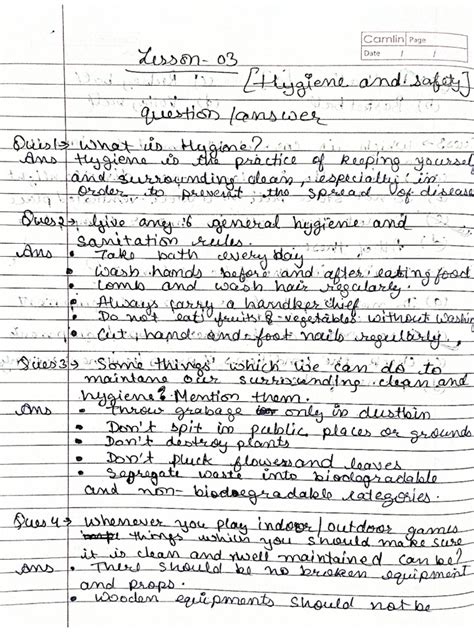 Camlin Page
Date / /
Lesson-03
[Hygiene and safety]
question/answer
Quis1→ What is Hygine?
Ans Hygiene is the practice of keeping yourself
and surrounding clean, especially in
order to prevent the spread of disease
Ques2→ Give any 6 general hygiene and
sanitation rules.
Ans • Take bath everyday
• Wash hands before and after eating food
• Comb and wash hair regularly.
• Always carry a handker chief
• Do not eat fruits & vegetables without washing
• Cut hand and foot nails regularly,
Ques3→ Some things which we can do to
maintane our surrounding clean and
hygiene? Mention them.
Ans • Throw grabage only in dustbin
• Don't spit in public places or grounds
• Don't destroy plants
• Don't pluck flowers and leaves
• Segregate waste into biodegradable
and non-biodegradable categories.
Ques4→ Whenever you play indoor/outdoor games
things which you should make sure
it is clean and well maintained can be?
Ans • There should be no broken equipment
and props.
• Wooden equipments should not be